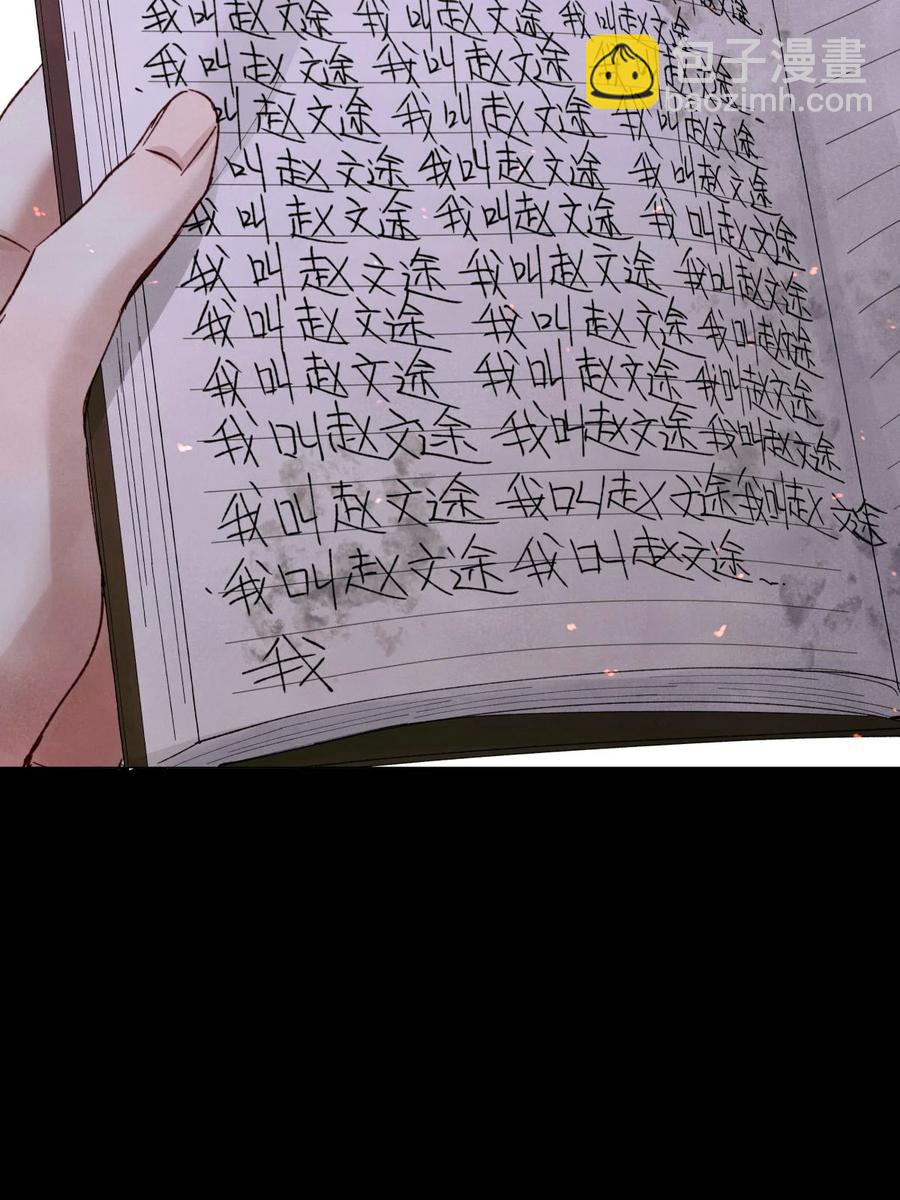 我叫赵文途 我叫赵文途 我叫赵文途
我叫赵文途 我叫赵文途 我叫赵文途
叫赵文途 我叫赵文途 我叫赵文途
叫赵文途 我叫赵文途 我叫赵文途
我叫赵文途 我叫赵文途 我叫赵文途
我叫赵文途 我叫赵文途 我叫赵文途
我叫赵文途 我叫赵文途 我叫赵文途
我叫赵文途 我叫赵文途 我叫赵文途
我叫赵文途 我叫赵文途 我叫赵文途
我叫赵文途 我叫赵文途 我叫赵文途
我叫赵文途 我叫赵文途
我
包子漫畫
baozimh.com